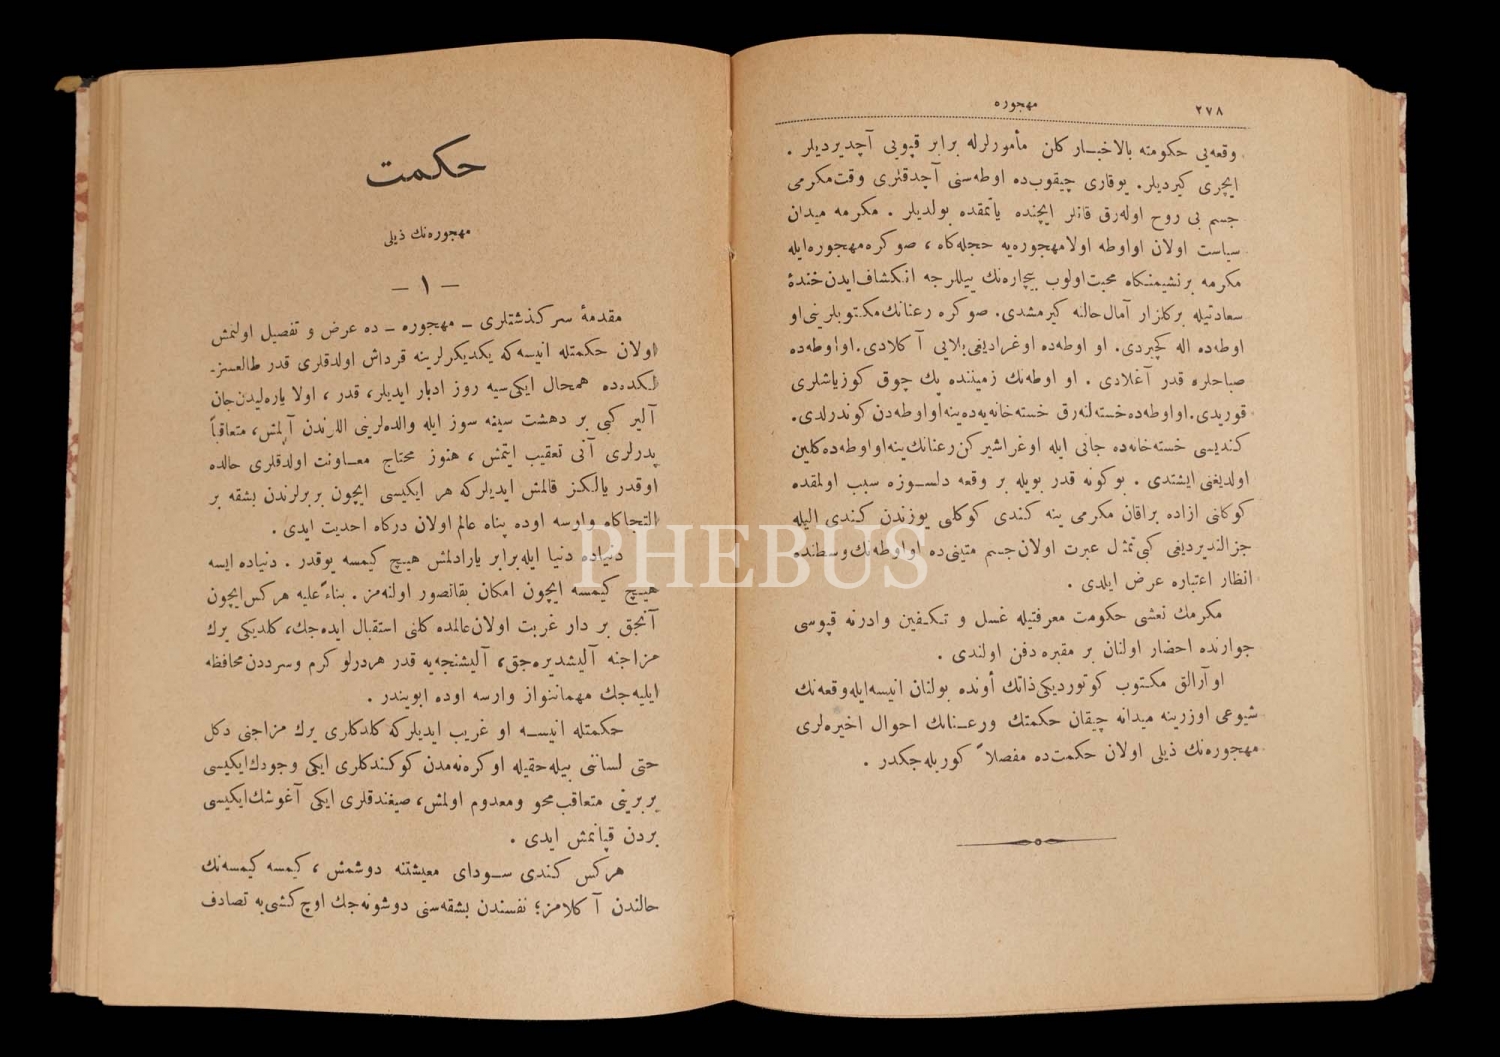 ٢٧٨
مهجوره
وقعه‌یی حکومته بالاخبار کلن مأمورلرله برابر قپویی آچدیردیلر .
ایچری کیردیلر. یوقاری چیقوب‌ده اوطه‌سنی آچدقلری وقت مکرمی
جسم بی روح اوله‌رق قانلر ایچنده یاتمقده بولدیلر . مکرمه میدان
سیاست اولان او اوطه اولا مهجوره‌یه حجله‌کاه ، صوکره مهجوره ایله
مکرمه بر نشیمنکاه محبت اولوب بیچاره‌نك ییللرجه انکشاف ایدن خندۀ
سعادتیله بر کلزار آمال حالنه کیرمشدی. صوکره رعنانك مکتوبلرینی او
اوطه‌ده اله کچیردی. او اوطه‌ده اوغرادیغی بلایی آکلادی. او اوطه‌ده
صباحلره قدر آغلادی . او اوطه‌نك زمیننده پك چوق کوزیاشلری
قوریدی. او اوطه‌ده خسته‌لنه‌رق خسته‌خانه‌یه‌ده ینه او اوطه‌دن کوندرلدی.
کندیسی خسته‌خانه‌ده جانی ایله اوغراشیرکن رعنانك ینه او اوطه‌ده کلین
اولدیغنی ایشتدی . بوکونه قدر بویله بر وقعه دلسوزه سبب اولمقده
کوکلنی ازاده براقان مکرمی ینه کندی کوکلی یوزندن کندی الیله
جزالندیردیغی کبی تمثل عبرت اولان جسم متینی‌ده او اوطه‌نك وسطنده
انظار اعتباره عرض ایلدی .
مکرمك نعشی حکومت معرفتیله غسل و تکفین و ادرنه قپوسی
جوارنده احضار اولنان بر مقبره‌ده دفن اولندی .
او آرالق مکتوب کوتوردیکی ذاتك أونده بولنان انیسه ایله وقعه‌نك
شیوعی اوزرینه میدانه چیقان حکمتك و رعنانك احوال اخیره‌لری
مهجوره‌نك ذیلی اولان حکمت‌ده مفصلاً کوریله‌جکدر .
حکمت
مهجوره‌نك ذیلی
— ١ —
مقدمۀ سرکذشتلری – مهجوره – ده عرض و تفصیل اولنمش
اولان حکمتله انیسه که یکدیکرلرینه قرداش اولدقلری قدر طالعسز-
لکده‌ده همحال ایکی سیه روز ادبار ایدیلر، قدر ، اولا یاره‌لیدن جان
آلیر کبی بر دهشت سینه سوز ایله والده‌لرینی اللرندن آلمش، متعاقباً
پدرلری آنی تعقیب ایتمش ، هنوز محتاج معاونت اولدقلری حالده
اوقدر یالکز قالمش ایدیلرکه هر ایکیسی ایچون بربرلرندن بشقه بر
التجاکاه وارسه اوده پناه عالم اولان درکاه احدیت ایدی .
دنیاده دنیا ایله برابر یارادلمش هیچ کیمسه یوقدر . دنیاده ایسه
هیچ کیمسه ایچون امکان بقا تصور اولنه‌مز . بناءً علیه هرکس ایچون
آنجق بر دار غربت اولان عالمده کلنی استقبال ایده‌جك، کلدیکی یرك
مزاجنه آلیشدیره‌جق، آلیشنجه‌یه قدر هر درلو کرم و سرددن محافظه
ایلیه‌جك مهماننواز وارسه اوده ابویندر .
حکمتله انیسه او غریب ایدیلرکه کلدکلری یرك مزاجنی دکل
حتی لساننی بیله حقیله اوکره‌نمه‌دن کوکندکلری ایکی وجودك ایکیسی
بربرینی متعاقب محو و معدوم اولمش، صیغندقلری ایکی آغوشك ایکیسی
بردن قپانمش ایدی .
هرکس کندی سودای معیشتنه دوشمش ، کیمسه کیمسه‌نك
حالندن آکلامز؛ نفسندن بشقه‌سنی دوشونه‌جك اوچ کشی‌یه تصادف
PHEBUS